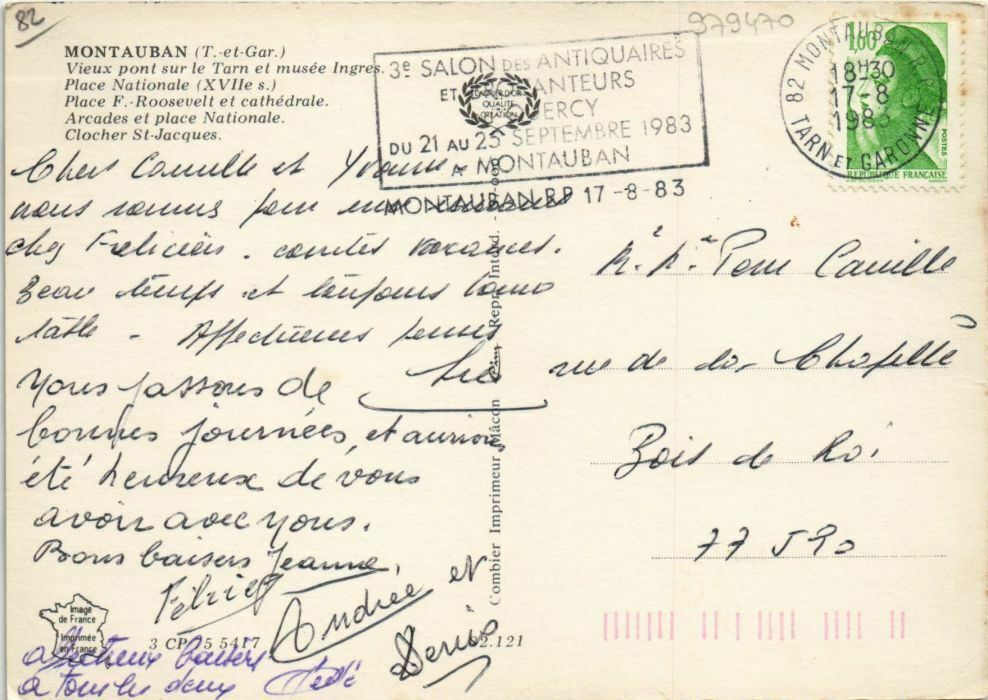 82
979470
MONTAUBAN (T.-et-Gar.)
Vieux pont sur le Tarn et musée Ingres.
Place Nationale (XVIIe s.)
Place F.-Roosevelt et cathédrale.
Arcades et place Nationale.
Clocher St-Jacques.
3e SALON DES ANTIQUAIRES
ET BROCANTEURS
QUERCY
DU 21 AU 25 SEPTEMBRE 1983
A MONTAUBAN
MONTAUBAN R.P 17-8-83
QUALITÉ
CRÉATION
82 MONTAUBAN R.P.
18H30
17-8
1983
TARN ET GARONNE
1,60
POSTES
RÉPUBLIQUE FRANÇAISE
Chers Camille et Yvonne
nous sommes pour une
chez Felicien. courtes vacances.
Beau temps et toujours bonne
table - Affectueuses pensées
Nous passons de
bonnes journées, et aurions
été heureux de vous
avoir avec nous.
Bons baisers Jeanne,
Andrée et
Denis
affectueux baisers
a tous les deux
Combier Imprimeur Mâcon Cim Repr. Interd.
Image
de France
Imprimée
en France
3 CP 75 5417
82.121
Camille
rue de la Chapelle
Bois le Roi
77 590